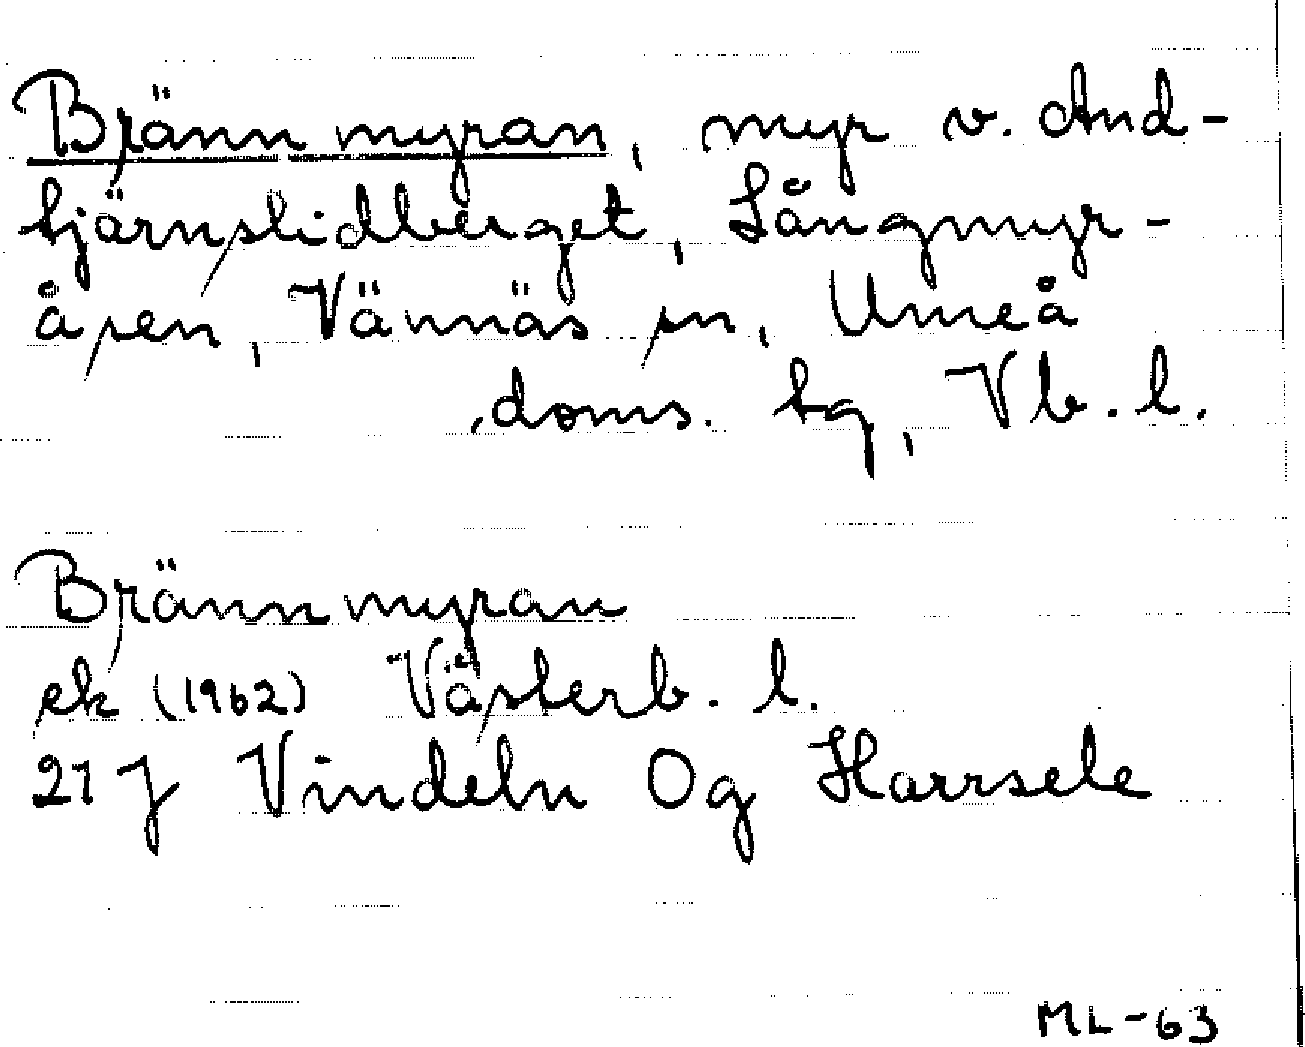 Brännmyran, myr v. And-
tjärnslidberget, Långmyr-
åsen, Vännäs sn, Umeå
doms. tg, Vb. l.
Brännmyran
ek (1962) Västerb. l.
21 J Vindeln Og Harrsele
ML-63